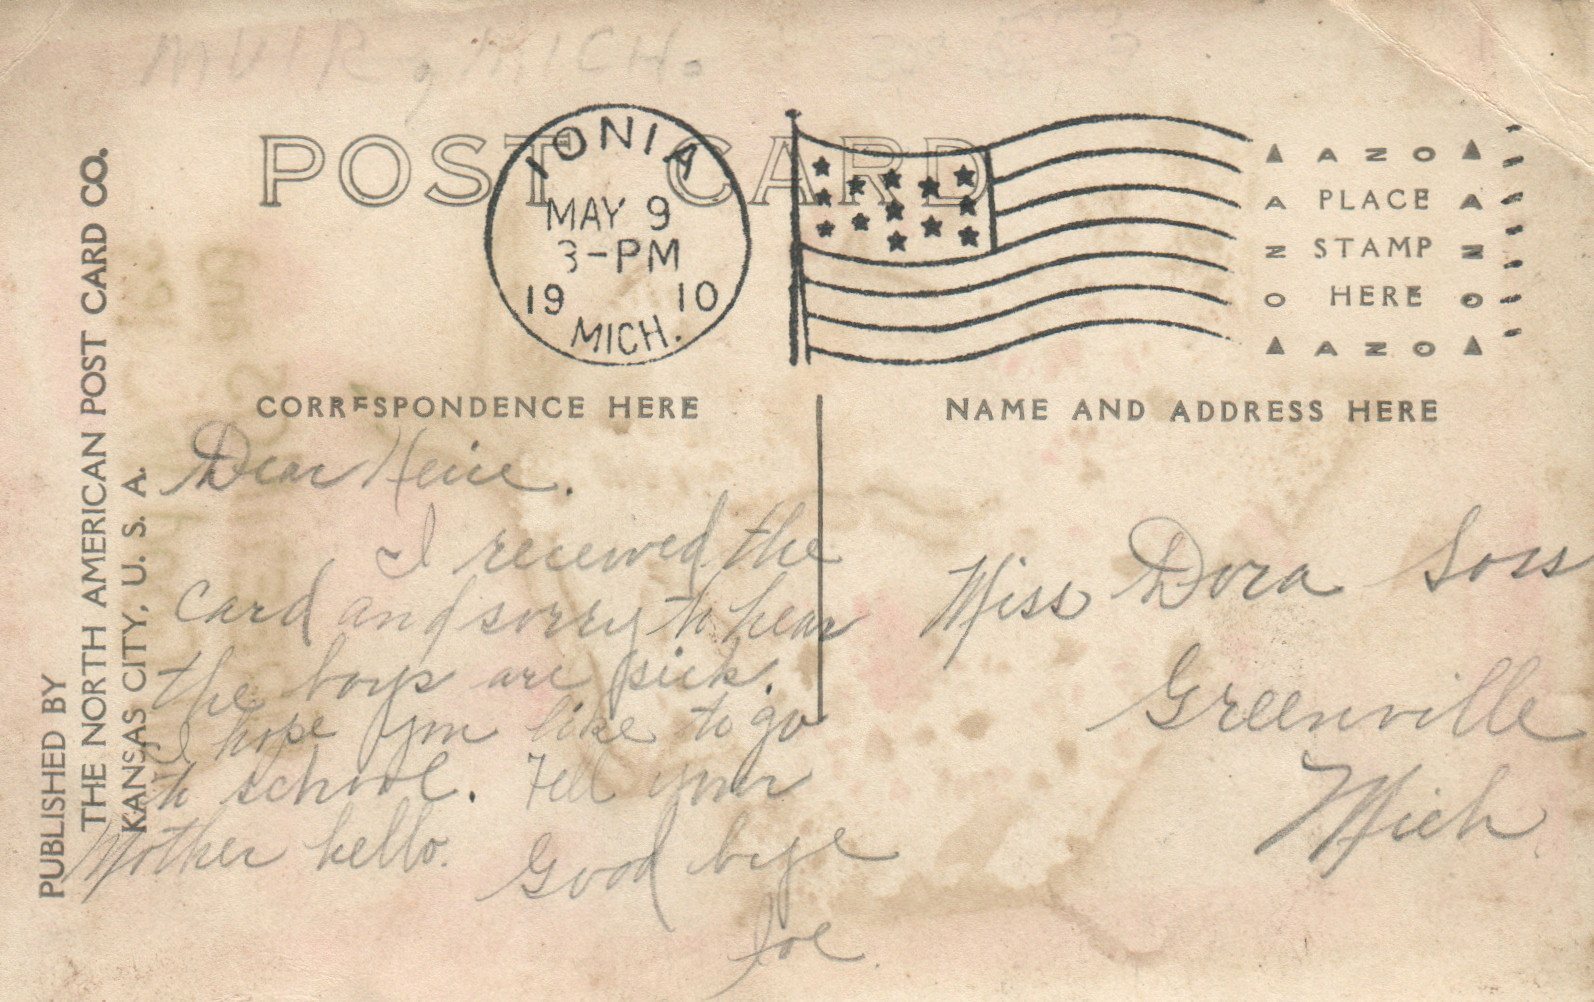 MUIR, MICH.
POST CARD
IONIA
MAY 9
3-PM
19 10
MICH.
AZO
PLACE
STAMP
HERE
AZO
PUBLISHED BY
THE NORTH AMERICAN POST CARD CO.
KANSAS CITY, U. S. A.
CORRESPONDENCE HERE
Dear
I received the
card and sorry to hear
the boys are sick.
I hope you like to go
to school. Tell your
Mother hello.
Good bye
Joe
NAME AND ADDRESS HERE
Miss Dora Soss
Greenville
Mich